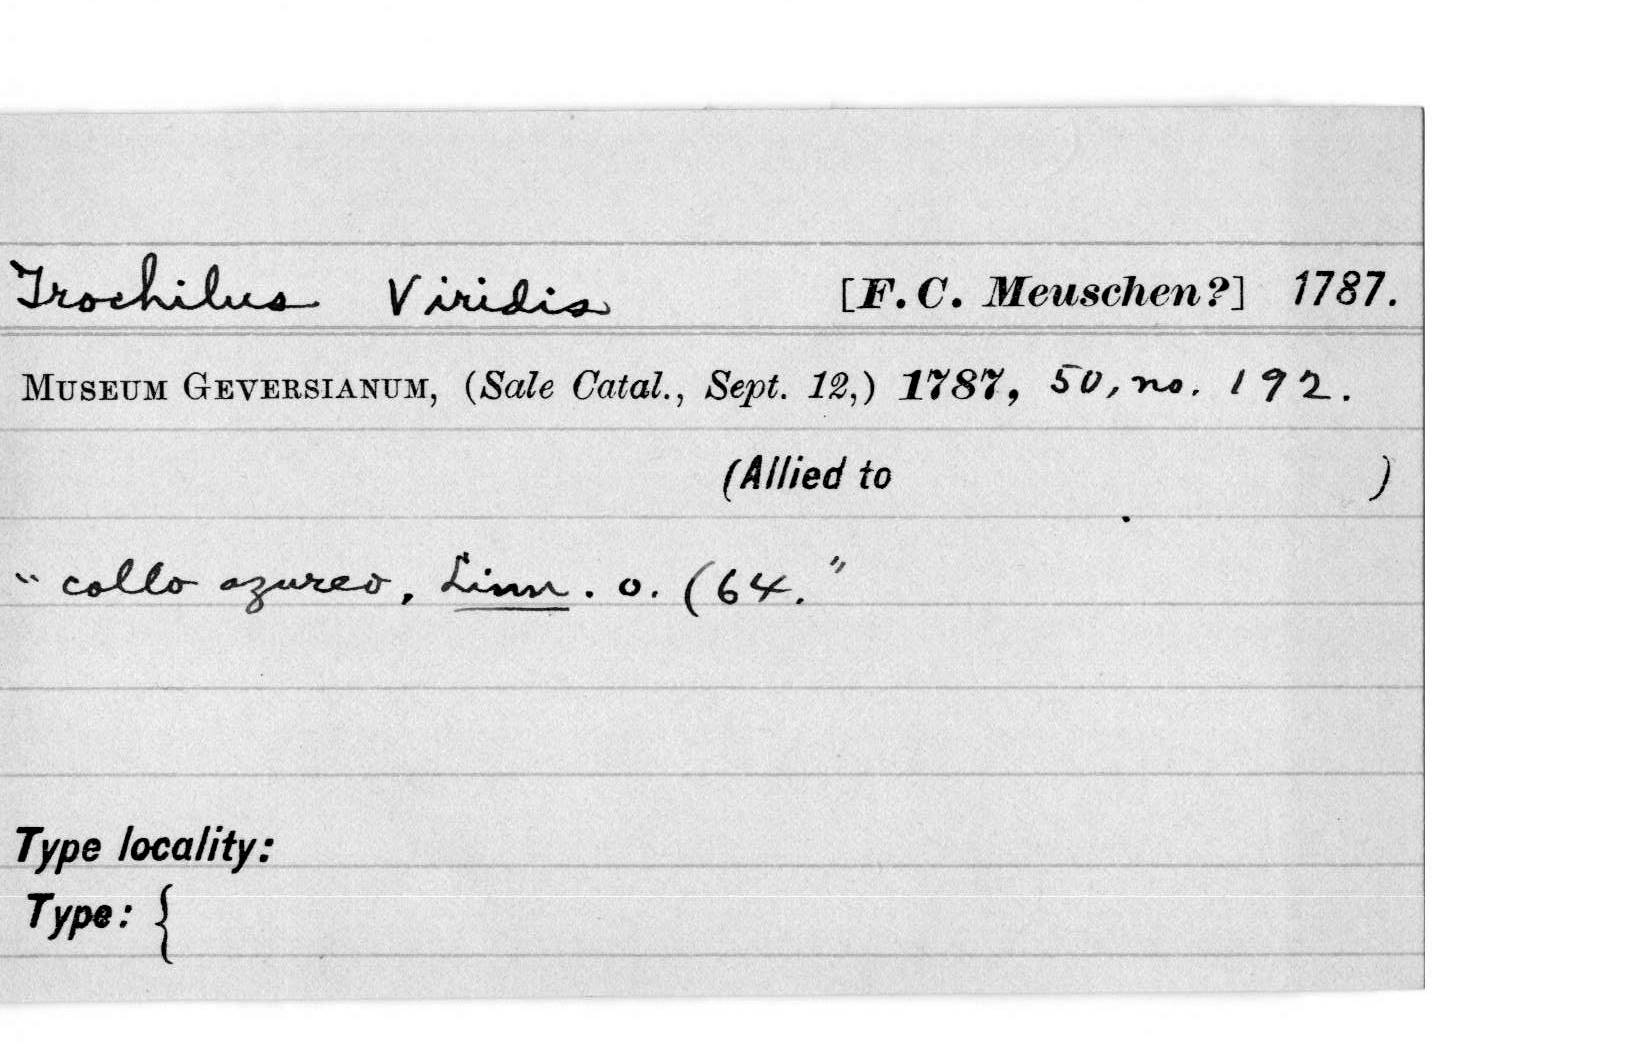 Trochilus Viridis [F. C. Meuschen?] 1787.
Museum Geversianum, (Sale Catal., Sept. 12,) 1787, 50, no. 192.
(Allied to )
" collo azureo, Linn. o. (64."
Type locality:
Type: {